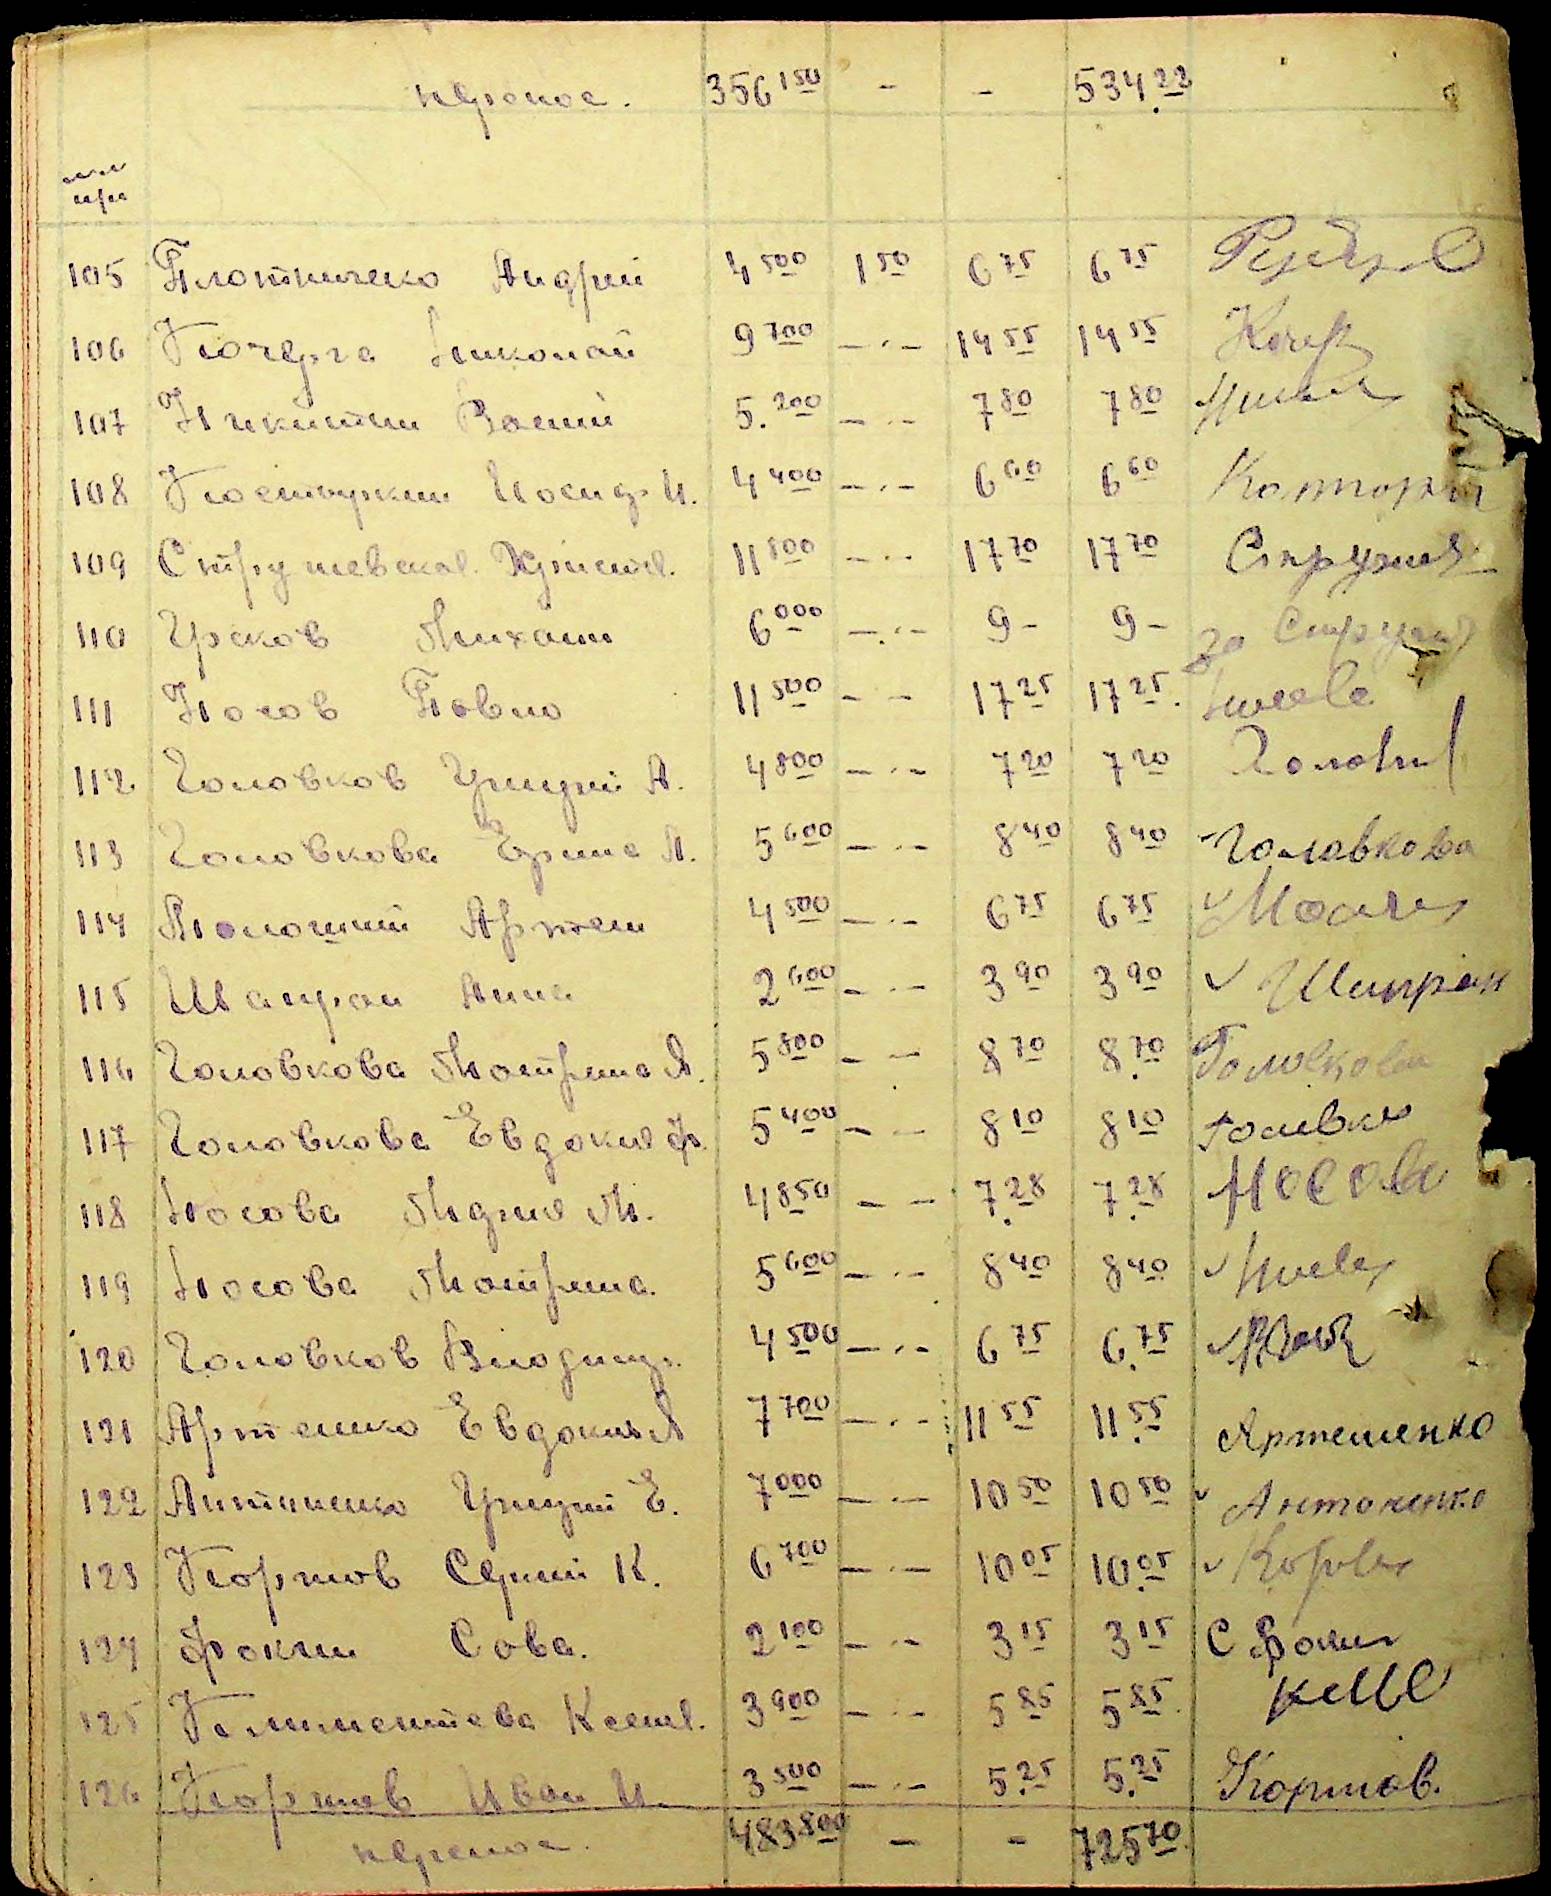 перенос. 356 150 - - 534.22
№№ п/п
105 Плотниченко Андрей 4 500 1 50 6 75 6 75
106 Кочерга Николай 9 700 -"- 14 55 14 55 Кочер
107 Никитин Васили 5. 200 -"- 7 80 7 80
108 Костыркин Иосиф И. 4 400 -"- 6 60 6 60
109 Струшевская 11 800 -"- 17 70 17 70 Струшев
110 Греков Михаил 6 000 -"- 9 - 9 - за Струш
111 Носов Павло 11 500 - - 17 25 17 25.
112 Головков Григрий А. 4 800 -"- 7 20 7 20 Головк
113 Головкова Ерина А. 5 600 -"- 8 40 8 40 Головкова
114 Артем 4 500 -"- 6 75 6 75
115 Шапран Анна 2 600 -"- 3 90 3 90 Шапран
116 Головкова Мотрина А. 5 800 - - 8 70 8.70 Головкова
117 Головкова Евдокия Ф. 5 400 - - 8 10 8 10 Головк
118 Носова Мария М. 4 850 - - 7.28 7.28 Носова
119 Носова Мотрина. 5 600 -"- 8 40 8 40
120 Головков Влодимир. 4 500 -"- 6 75 6.75
121 Артеменко Евдокия А 7 700 -"- 11 55 11.55 Артеменко
122 Антоненко Григрий Е. 7 000 -"- 10 50 10 50 Антоненко
123 Кортов Сергий К. 6 700 -"- 10 05 10.05
124 Фокин Сава. 2 100 -"- 3 15 3 15 С Фокин
125 Климентьева Ксения. 3 900 -"- 5 85 5 85
126 Кортов Иван И. 3 500 -"- 5.25 5.25 Кортов.
перенос. 483 800 - - 725 70